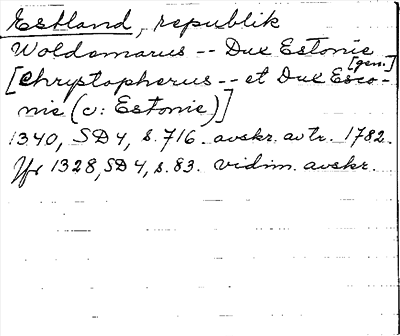 Estland, republik
Woldomarus -- Dux Estonie
[gen.]
[Chrystopherus -- et Dux Esco-
nie (ɔ: Estonie)]
1340, SD 4, s. 716. avskr. av tr. 1782.
Jfr 1328, SD 4, s. 83. vidim. avskr.